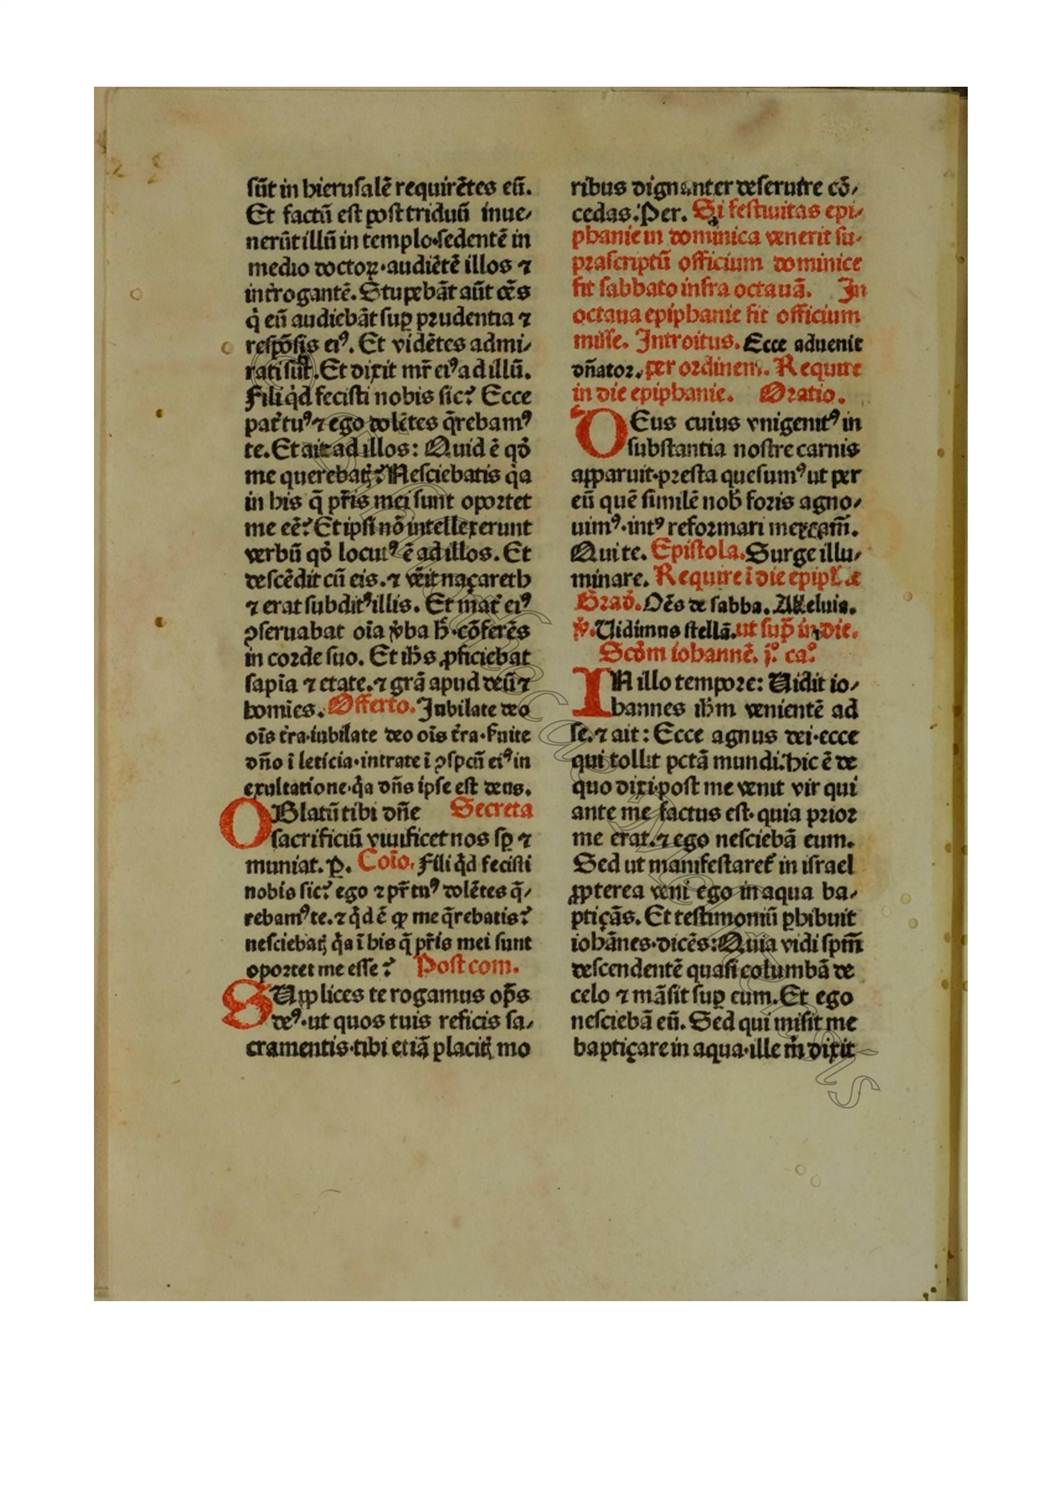 sūt in hierusalē requirētes eū.
Et factū est post triduū inue/
nerūt illū in templo·sedentē in
medio doctoꝝ·audiētē illos ⁊
int̄rogantē. Stupebāt aūt oēs
q̇ eū audiebāt sup̲ prudentia ⁊
respōsis eiꝰ. Et vidētes admi/
rati sūt. Et dixit mr̄ eiꝰ ad illū.
Fili q̇d fecisti nobis sic? Ecce
pat̄ tuꝰ ⁊ ego dolētes q̄rebamꝰ
te. Et ait ad illos: Quid ē qȯ
me querebatꝭ? Nesciebatis q̇a
in his q̄ pr̄is mei sunt oportet
me eē? Et ipsi nō intellexerunt
verbū qȯ locutꝰ ē ad illos. Et
descēdit cū eis. ⁊ vēit naçareth
⁊ erat subditꝰ illis. Et mat̄ eiꝰ
ꝯseruabat oīa v̇ba h̄·cōferēs
in corde suo. Et ih̄s ꝓficiebat
sapīa ⁊ etate.⁊ grā apud deū ⁊
homīes. Offerto. Jubilate deo
oīs t̄ra·iubilate deo oīs t̄ra·ſuite
dn̄o ī leticia·intrate ī ꝯspcū eiꝰ in
exultatione·q̇a dn̄s ipse est deus.
OBlatū tibi dn̄e Secreta
sacrificiū viuificet nos sp̲ ⁊
muniat. P̲. Coīo. Fili q̇d fecisti
nobis sic? ego ⁊ pr̄ tuꝰ dolētes q̄/
rebamꝰ te.⁊ q̇d ē ꝙ me q̄rebatis?
nesciebatꝭ q̇a ī his q̄ pr̄is mei sunt
oportet me esse? Post com.
SUpplices te rogamus op̄s
deꝰ·ut quos tuis reficis sa/
cramentis·tibi etiā placitꝭ mo
ribus dignanter deseruire cō/
cedas. Per. Si festiuitas epi/
phanie in dominica venerit su/
prascriptū officium dominice
fit sabbato infra octauā. In
octaua epiphanie fit officium
misse. Introitus. Ecce aduenit
dn̄ator. per ordinem. Require
in die epiphanie. Oratio.
DEus cuius vnigenitꝰ in
substantia nostre carnis
apparuit·presta quesumꝰ ut per
eū quē similē nob̄ foris agno/
uimꝰ·intꝰ reformari meream̄.
Qui te. Epistola. Surge illu/
minare. Require ī die epiph̄ie
Grad̄. Oēs de sabba. Alleluia.
v̇. Uidimus stellā. ut sup̄ in die.
Scd̄m iohannē. j.° ca.°
IN illo tempore: Uidit io/
hannes ih̄m venientē ad
se.⁊ ait: Ecce agnus dei·ecce
qui tollit pctā mundi. hic ē de
quo dixi·post me venit vir qui
ante me factus est· quia prior
me erat.⁊ ego nesciebā eum.
Sed ut manifestaret̄ in israel
ꝓpterea veni ego in aqua ba/
ptiçās. Et testimoniū p̲hibuit
iohānes·dicēs: Quia vidi spm̄
descendentē quasi columbā de
celo ⁊ māsit sup̲ eum. Et ego
nesciebā eū. Sed qui misit me
baptiçare in aqua·ille m̄ dixit